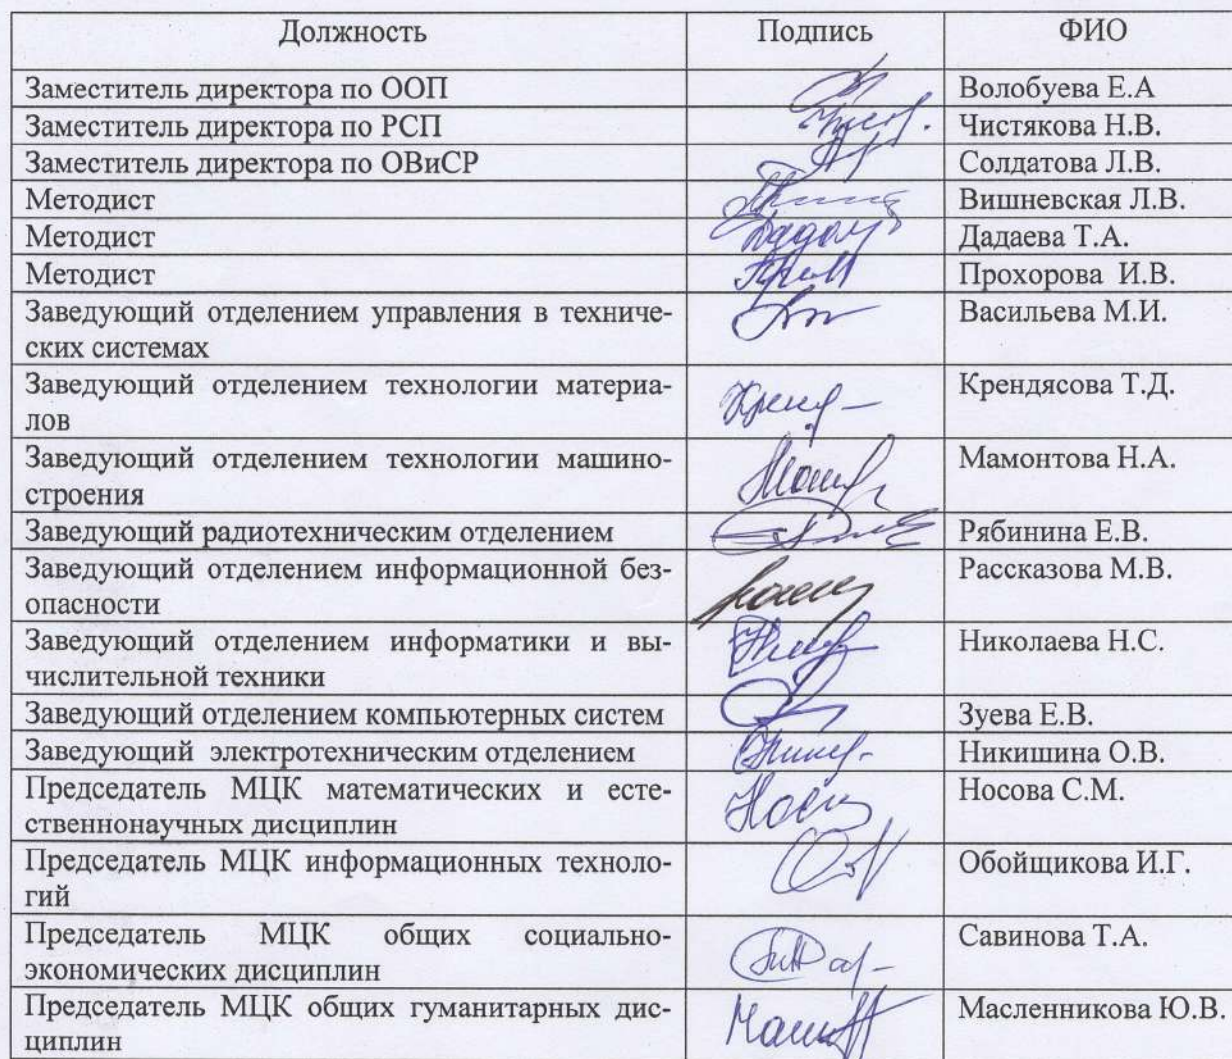 Должность Подпись ФИО
Заместитель директора по ООП Волобуева Е.А
Заместитель директора по РСП Чистякова Н.В.
Заместитель директора по ОВиСР Солдатова Л.В.
Методист Вишневская Л.В.
Методист Дадаева Т.А.
Методист Прохорова И.В.
Заведующий отделением управления в техниче- Васильева М.И.
ских системах
Заведующий отделением технологии материа- Крендясова Т.Д.
лов
Заведующий отделением технологии машино- Мамонтова Н.А.
строения
Заведующий радиотехническим отделением Рябинина Е.В.
Заведующий отделением информационной без- Рассказова М.В.
опасности
Заведующий отделением информатики и вы- Николаева Н.С.
числительной техники
Заведующий отделением компьютерных систем Зуева Е.В.
Заведующий электротехническим отделением Никишина О.В.
Председатель МЦК математических и есте- Носова С.М.
ственнонаучных дисциплин
Председатель МЦК информационных техноло- Обойщикова И.Г.
гий
Председатель МЦК общих социально- Савинова Т.А.
экономических дисциплин
Председатель МЦК общих гуманитарных дис- Масленникова Ю.В.
циплин